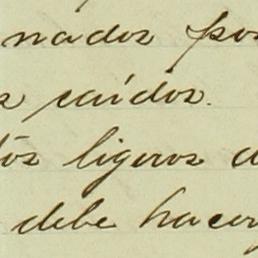 nados por
s caídos.
tos ligeros d
debe hacer